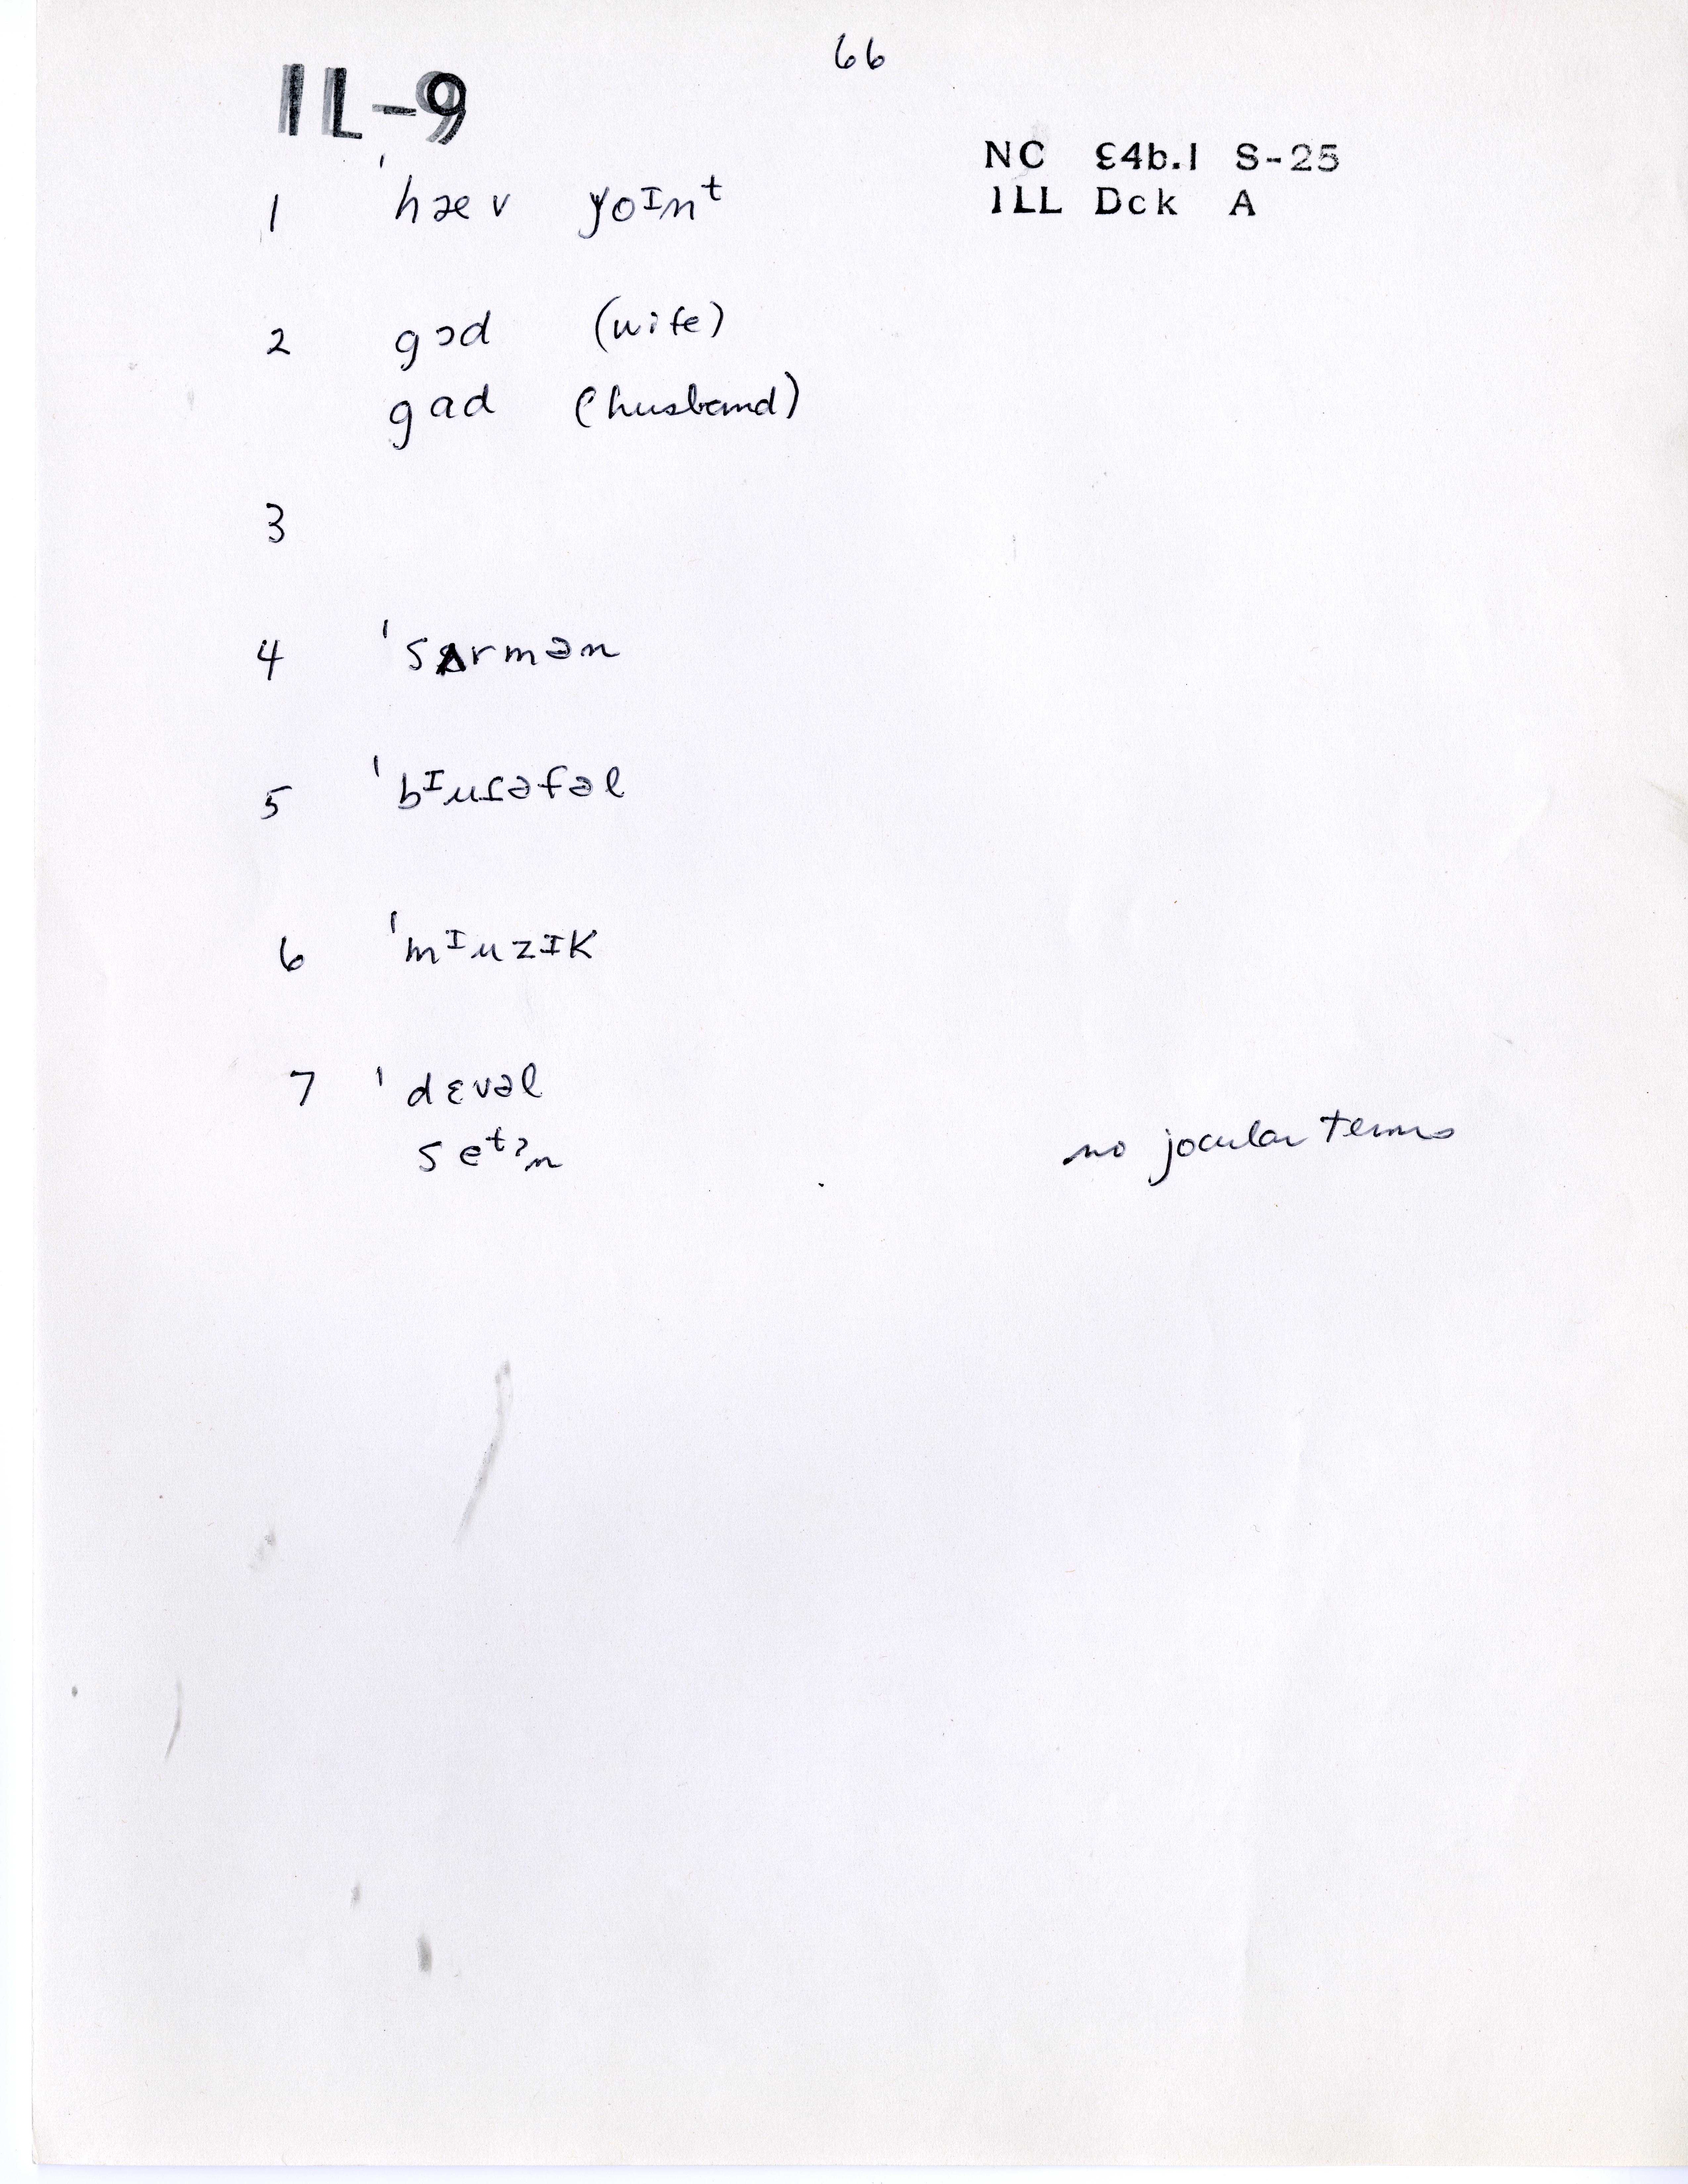 66
IL-9
NC ɛ4b.1 S-25
ILL Dck A
1 ˈhæv ɣoɪnᵗ
2 gɔd (wife)
gad (husband)
3
4 ˈsʌrmən
5 ˈbᶦuɾəfəl
6 ˈmᶦuzɪk
7 ˈdɛvəl
no jocular terms